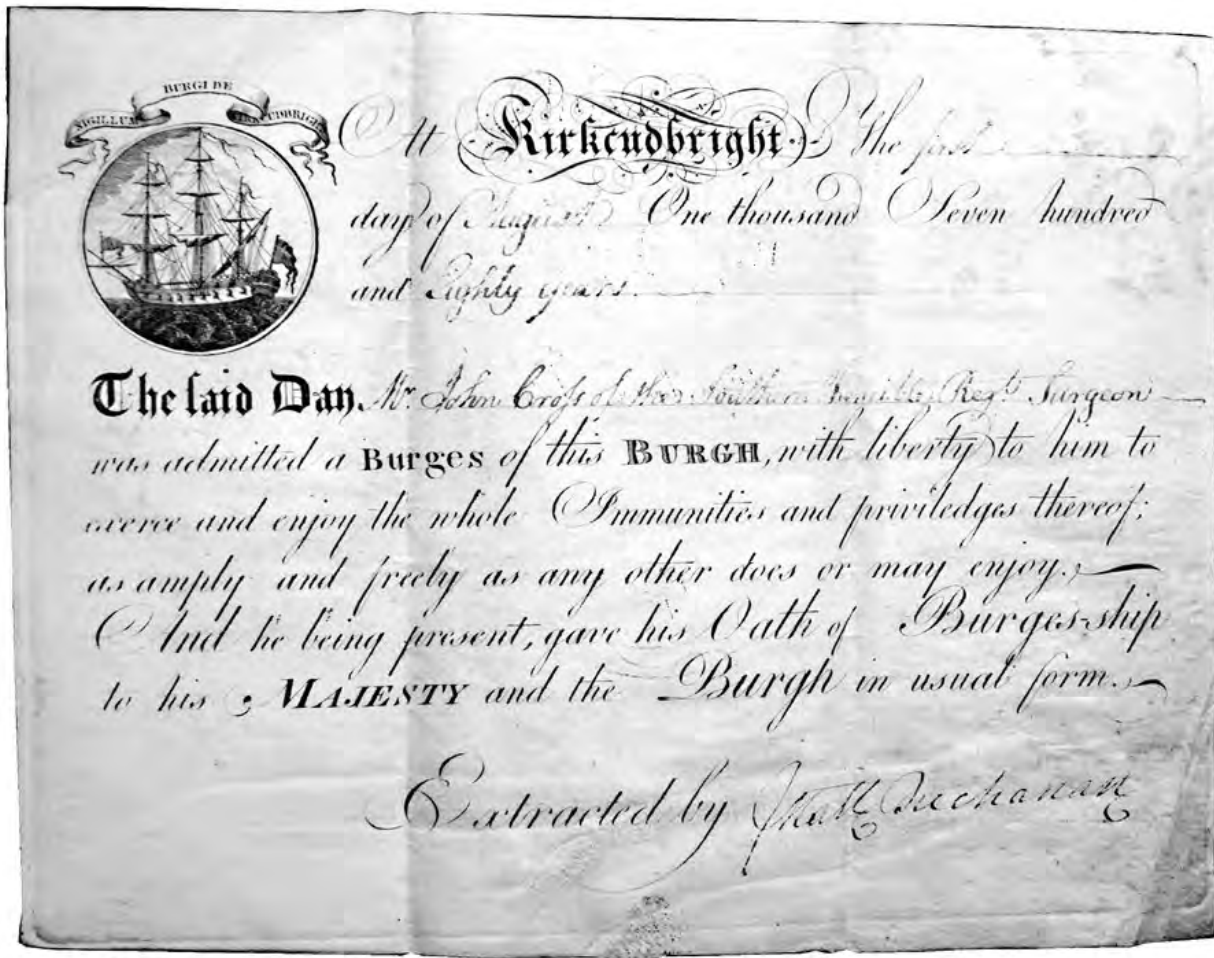 SIGILLUM BURGI DE KIRKCUDBRIGHT
At Kirkcudbright The first
day of August One thousand Seven hundred
and Eighty years.
The said Day, Mr. John Cross of the Southern Fencible Regt. Surgeon
was admitted a Burges of this BURGH, with liberty to him to
exerce and enjoy the whole Immunities and priviledges thereof;
as amply and freely as any other does or may enjoy.
And he being present, gave his Oath of Burges-ship
to his MAJESTY and the Burgh in usual form.
Extracted by Buchanan